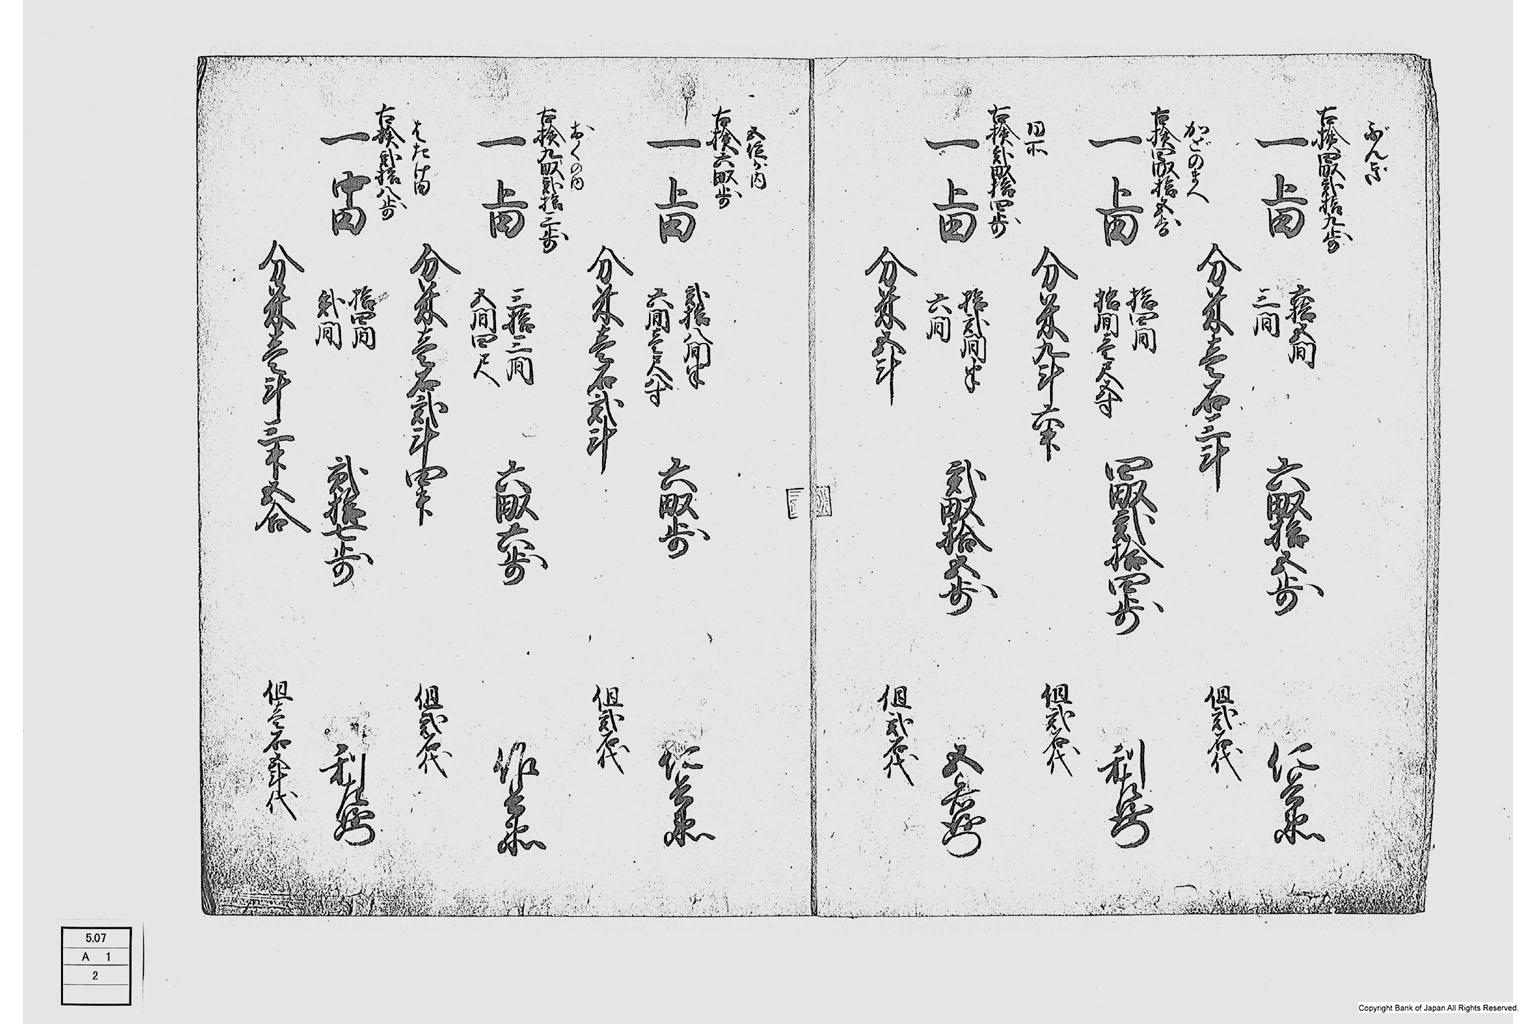 ぶんぎ
古検四畝弐拾九歩
一上田
拾五間
三間
六畝拾五歩
仁兵衛
分米壱石三斗
但弐石代
かどのまへ
古検四畝拾五歩
一上田
拾四間
拾間壱尺五寸
四畝弐拾四歩
利兵衛
分米九斗六升
但弐石代
同所
古検弐畝拾四歩
一上田
拾弐間半
六間
弐畝拾五歩
五兵衛
分米五斗
但弐石代
古検六畝歩
一上田
弐拾八間半
六間壱尺八寸
六畝歩
仁兵衛
分米壱石弐斗
但弐石代
おくの田
古検九畝弐拾三歩
一上田
三拾三間
五間四尺
六畝六歩
作兵衛
分米壱石弐斗四升
但弐石代
古検弐拾八歩
一中田
拾四間
弐間
弐拾七歩
利兵衛
分米壱斗三升五合
但壱石五斗代
5.07
A 1
2
Copyright Bank of Japan All Rights Reserved.